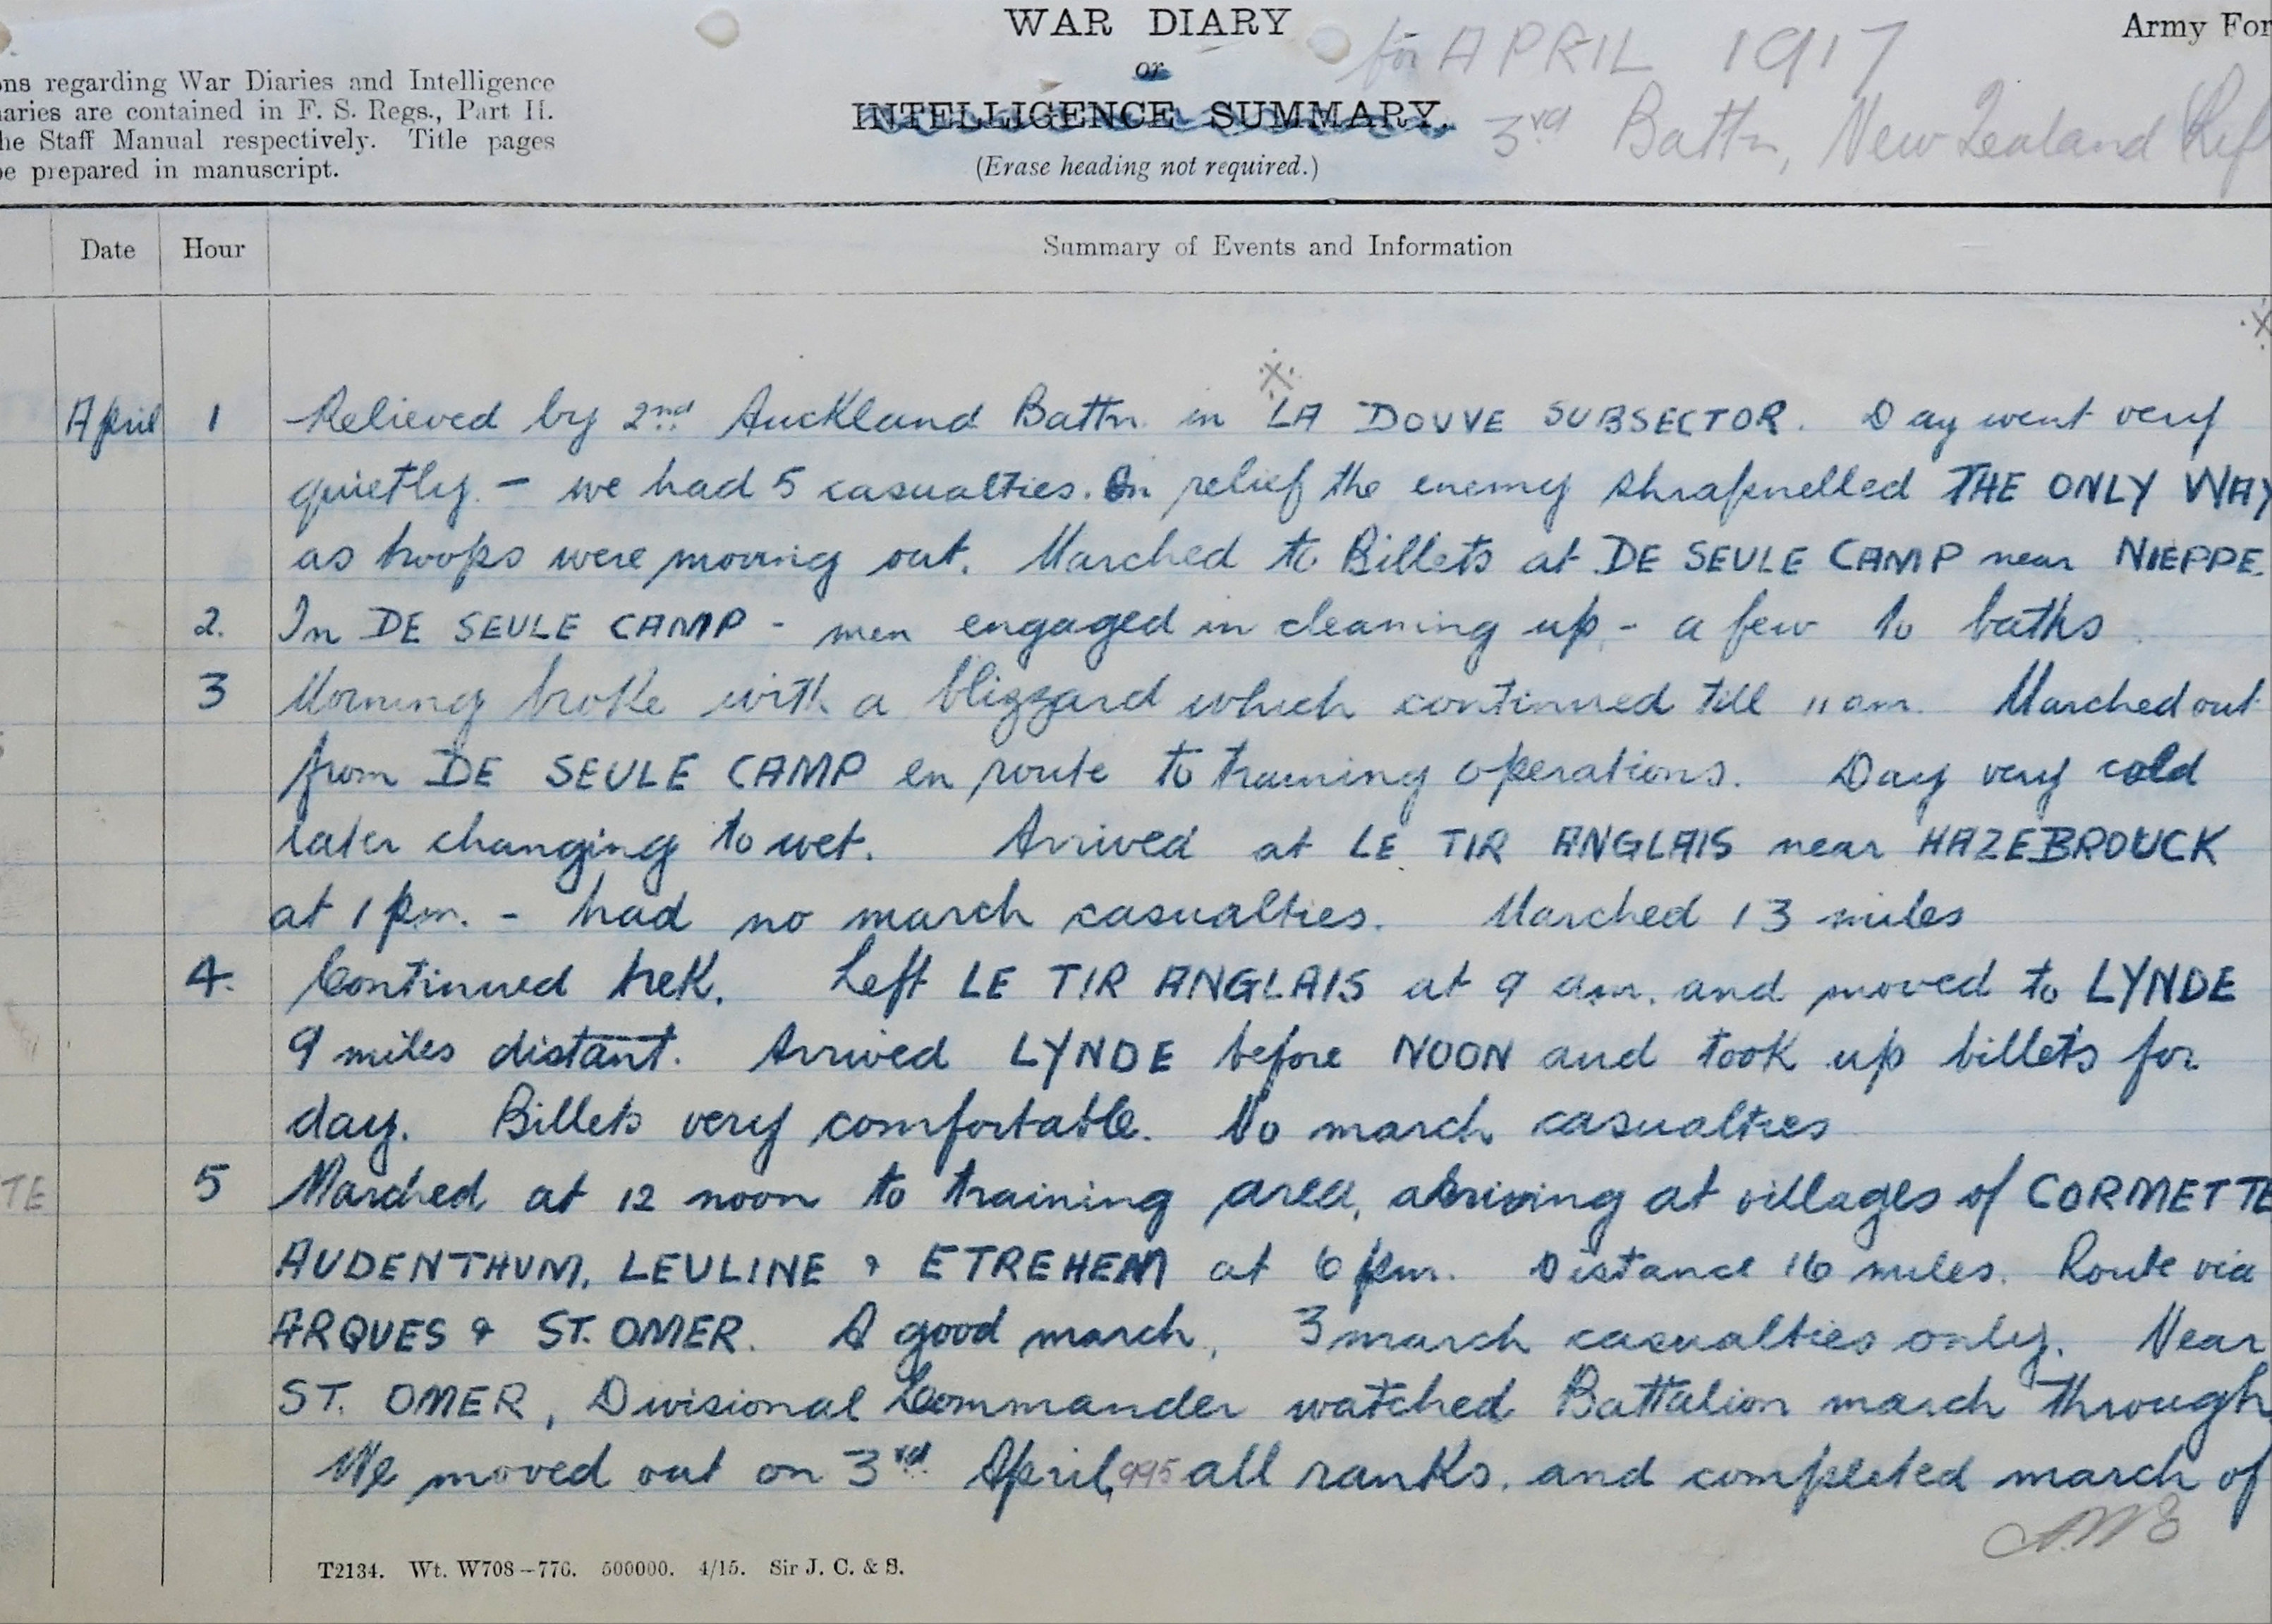 WAR DIARY
Army For
for APRIL 1917
or
INTELLIGENCE SUMMARY.
3rd Battn, New Zealand Rif
(Erase heading not required.)
ons regarding War Diaries and Intelligence
naries are contained in F. S. Regs., Part II.
he Staff Manual respectively. Title pages
be prepared in manuscript.
Date Hour Summary of Events and Information
April 1 Relieved by 2nd Auckland Battn. in LA DOUVE SUBSECTOR. Day went very
quietly. - we had 5 casualties. On relief the enemy shrapnelled THE ONLY WAY
as troops were moving out. Marched to Billets at DE SEULE CAMP near NIEPPE.
2. In DE SEULE CAMP - men engaged in cleaning up - a few to baths.
3 Morning broke with a blizzard which continued till 11 am. Marched out
from DE SEULE CAMP en route to training operations. Day very cold
later changing to wet. Arrived at LE TIR ANGLAIS near HAZEBROUCK
at 1 pm. - had no march casualties. Marched 13 miles
4. Continued trek. Left LE TIR ANGLAIS at 9 am. and moved to LYNDE
9 miles distant. Arrived LYNDE before NOON and took up billets for
day. Billets very comfortable. No march casualties
TE 5 Marched at 12 noon to training area, arriving at villages of CORMETTE
AUDENTHUM, LEULINE & ETREHEM at 6 pm. Distance 16 miles. Route via
ARQUES & ST. OMER. A good march, 3 march casualties only. Near
ST. OMER, Divisional Commander watched Battalion march through.
We moved out on 3rd April, 995 all ranks. and completed march of
T2134. Wt. W708-776. 500000. 4/15. Sir J. C. & S.